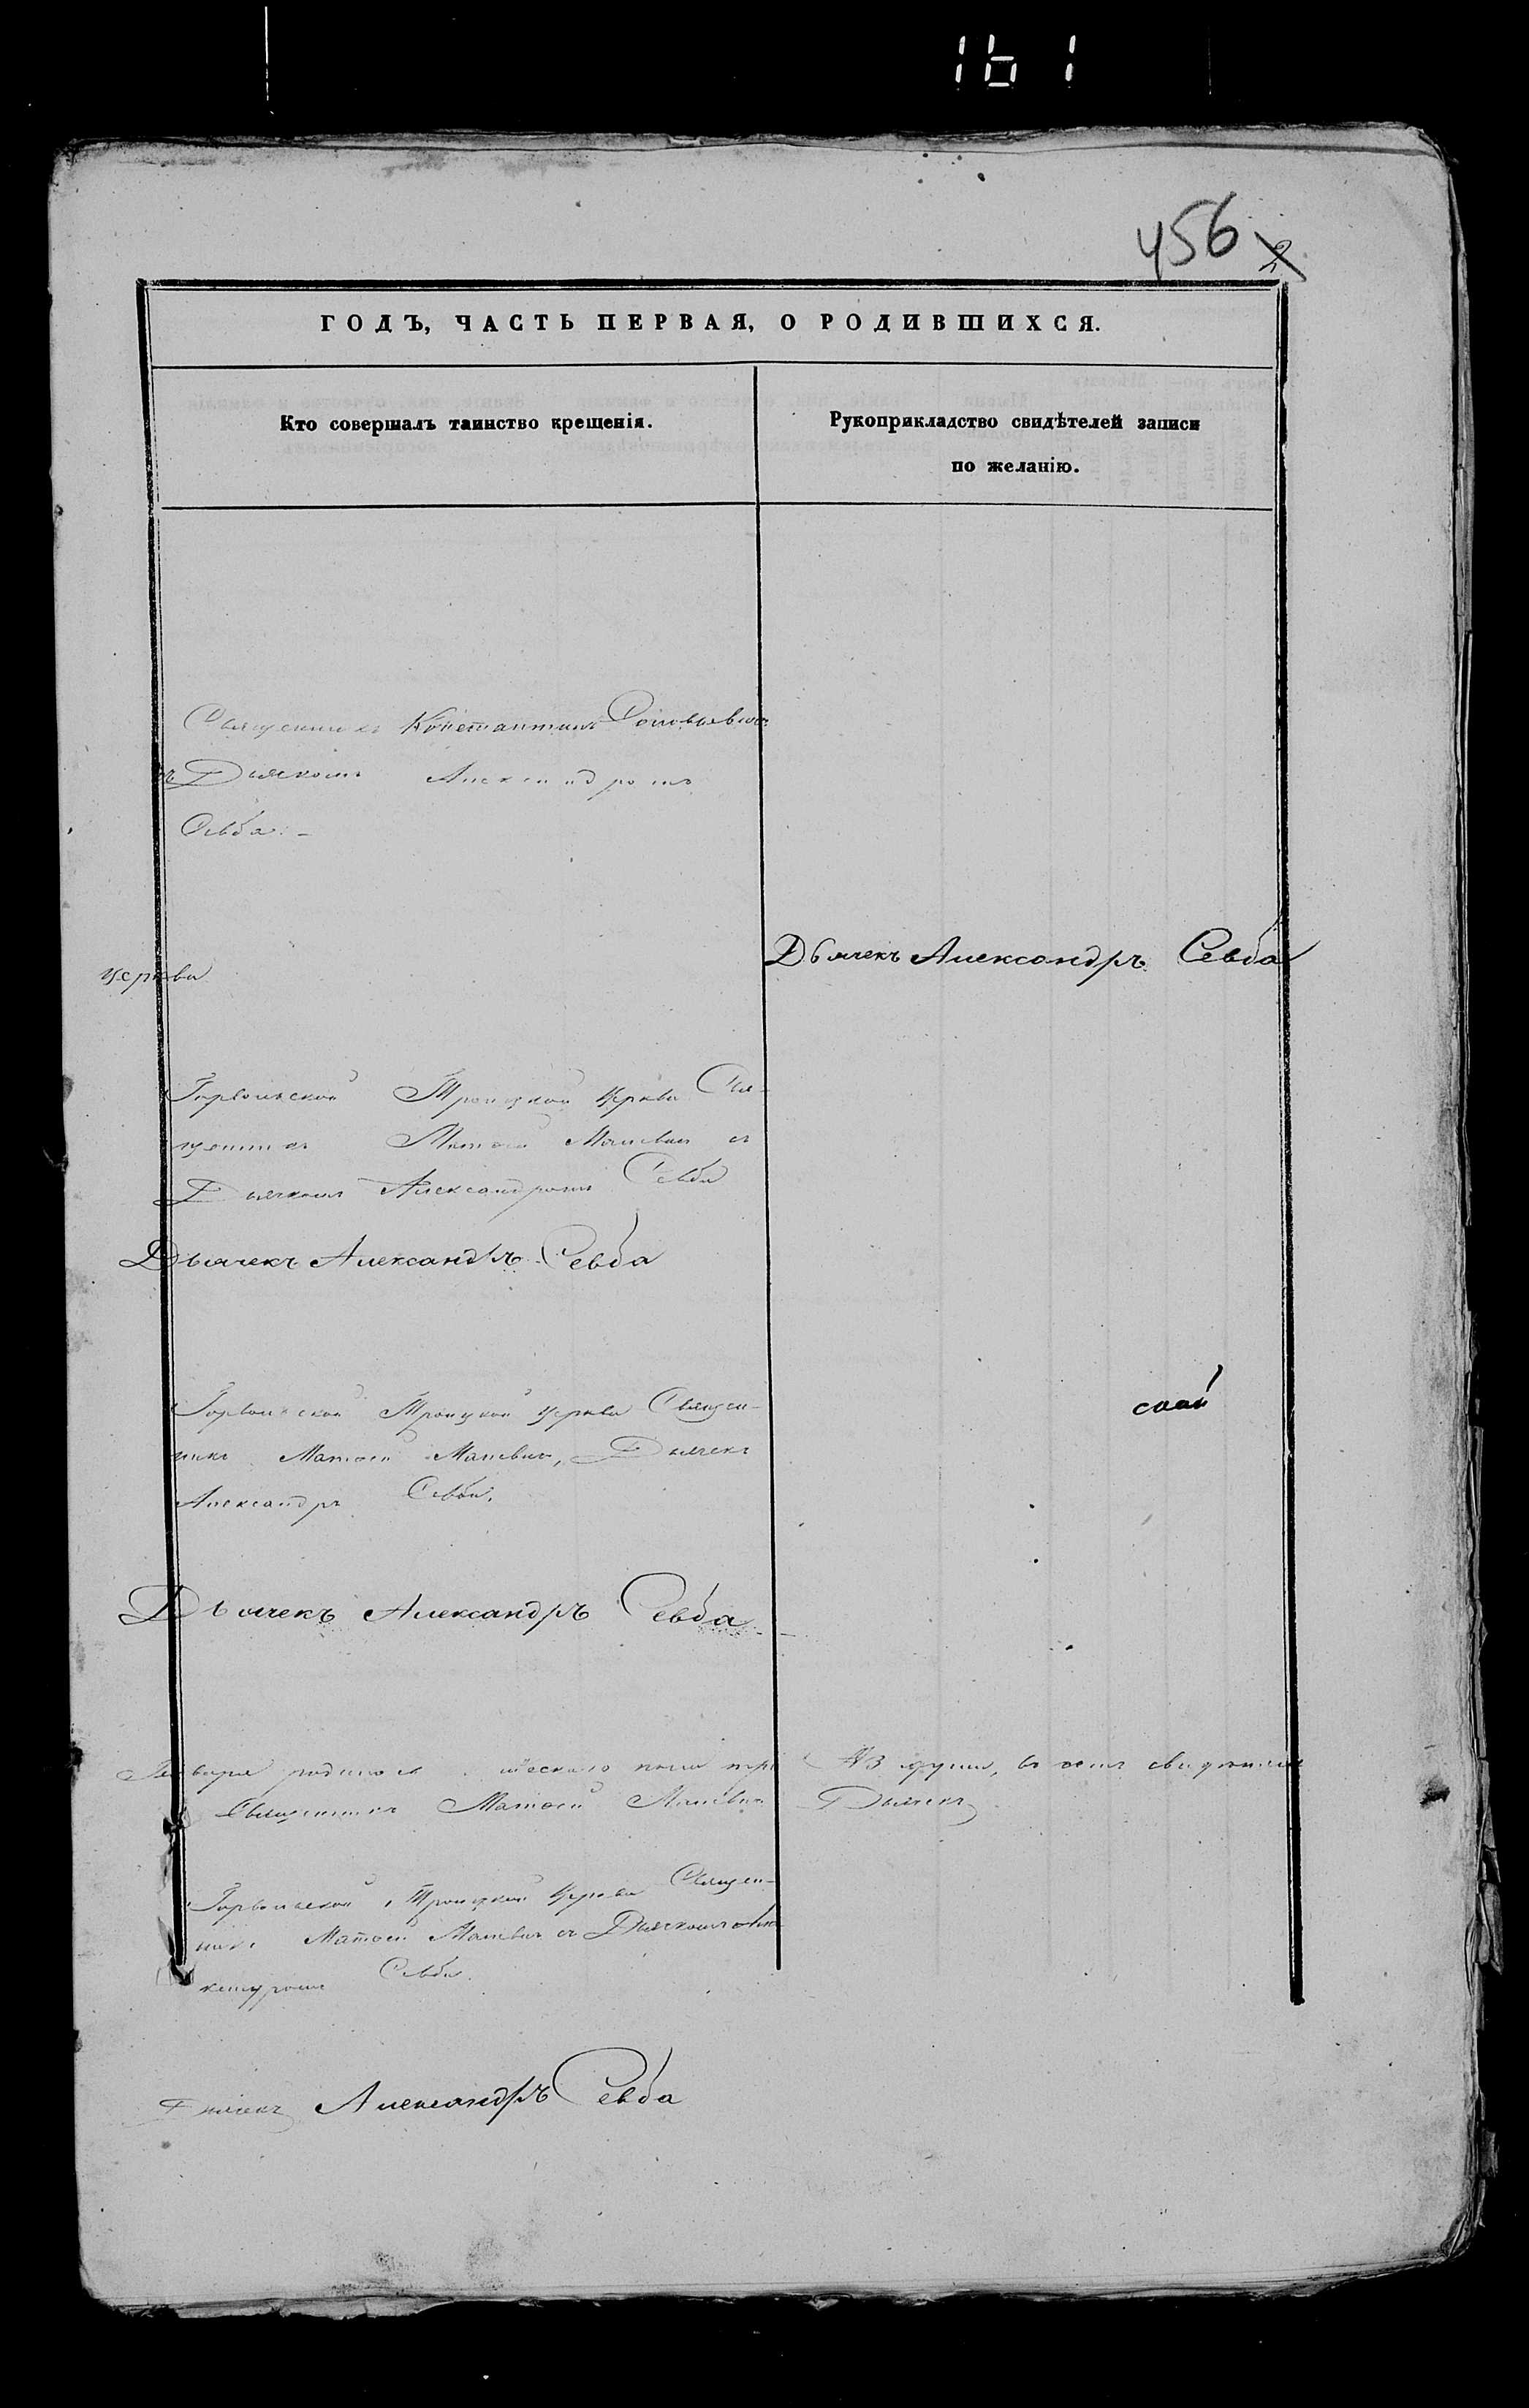 161
456 2
ГОДЪ, ЧАСТЬ ПЕРВАЯ, О РОДИВШИХСЯ.
Кто совершалъ таинство крещенія.
Рукоприкладство свидѣтелей записи
по желанію.
Священникъ Константинъ
съ Дьячкомъ Александромъ
Севба. -
церкви
Дьячекъ Александръ Севба
Горвольской Троицкой церкви Свя-
щенникъ Матѳей Малевичъ съ
Дьячкомъ Александромъ Севба
Дьячекъ Александръ Севба
Горвольской Троицкой церкви Священ-
никъ Матѳей Малевичъ, Дьячекъ
Александръ Севба.
Дьячекъ Александръ Севба
Января родилось женскаго пола три
души, въ чемъ свидѣтели
Священникъ Матѳей Малевичъ
Дьячекъ
Горвольской Троицкой Церкви Священ-
никъ Матѳей Малевичъ съ Дьячкомъ
Севба.
Дьячекъ Александръ Севба